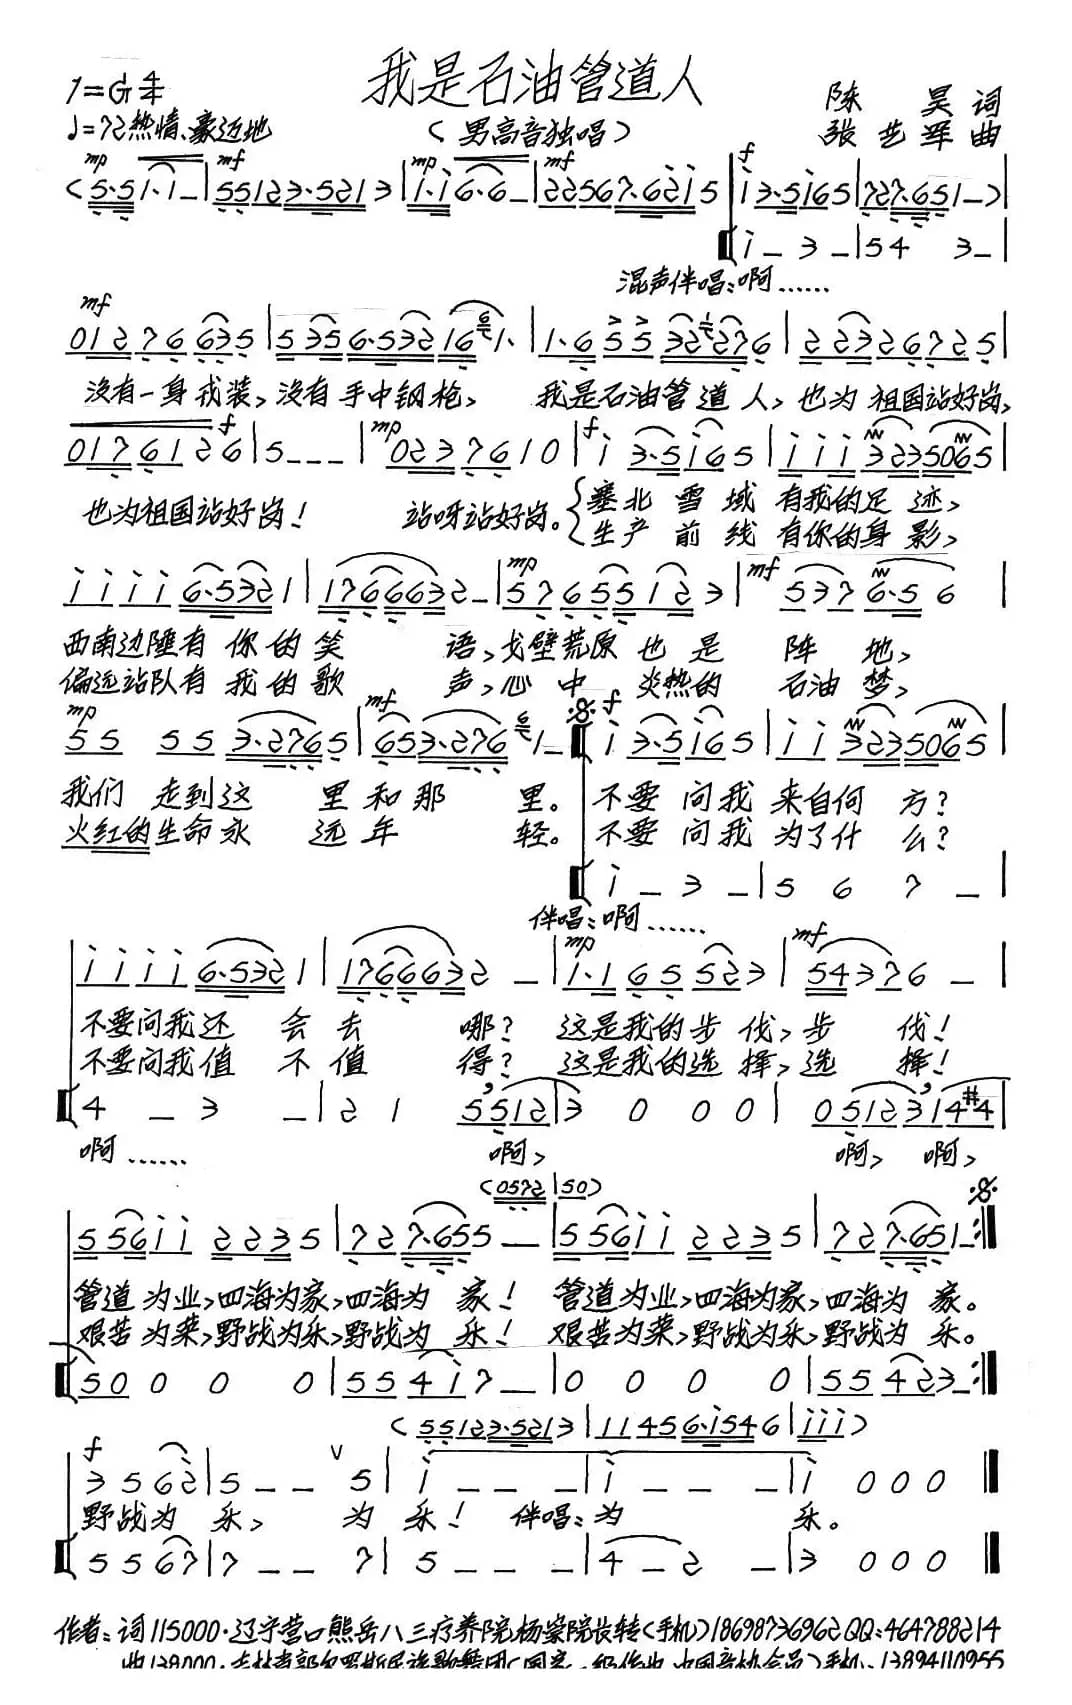 我是石油管道人
1=G 4/4
陈昊词
♩=72热情、豪迈地
（男高音独唱）
张艺军曲
mp mf mp mf f
(5·5 1·1 — | 5512 3·521 3 | i·i 6·6 — | 2256 7·62i 5 | i 3·5i65 | 727·651 — ) |
i — 3 — | 54 3 — |
混声伴唱：啊……
mf
012 76 635 | 5 35 6·532 161· | 1·6 55 32276 | 2232 6725 |
没有一身戎装，没有手中钢枪， 我是石油管道人，也为祖国站好岗，
f mp f
0176126 | 5 — — — | 023 76 10 | i 3·5i65 | iii 3235065 |
也为祖国站好岗！ 站呀站好岗。 塞北雪域有我的足迹，
生产前线有你的身影，
mp mf
iiii 6·532 1 | 17666 32 — | 57 655 12 3 | 537 6·5 6 |
西南边陲有你的笑语，戈壁荒原也是阵地，
偏远站队有我的歌声，心中炎热的石油梦，
mp mf f
55 55 3·2765 | 653·276 1 — | i 3·5i65 | ii 3235065 |
我们走到这里和那里。不要问我来自何方？
火红的生命永远年轻。不要问我为了什么？
i — 3 — | 5 6 7 — |
伴唱：啊……
mp mf
iiii 6·532 1 | 17666 32 — | 1·1 65 52 3 | 5437 6 — |
不要问我还会去哪？这是我的步伐，步伐！
不要问我值不值得？这是我的选择，选择！
4 — 3 — | 2 1 5512 | 3 0 0 0 | 05123 14#4 |
啊…… 啊， 啊，啊，
(0572 | 50)
556ii 2235 | 72 7·655 — | 556ii 2235 | 72 7·651 — :||
管道为业，四海为家，四海为家！ 管道为业，四海为家，四海为家。
艰苦为荣，野战为乐，野战为乐！ 艰苦为荣，野战为乐，野战为乐。
50 0 0 0 | 554i7 — | 0 0 0 0 | 55423 — :||
(55123·5213 | 11456·i546 | iii)
f
3 5 62 | 5 — — 5 | i — — — | i — — — | i 0 0 0 ||
野战为乐，为乐！伴唱：为乐。
5 5 67 | 7 — — 7 | 5 — — — | 4 — 2 — | 3 0 0 0 ||
作者：词115000·辽宁营口熊岳八三疗养院杨家院长转（手机）18698736962QQ：464788214